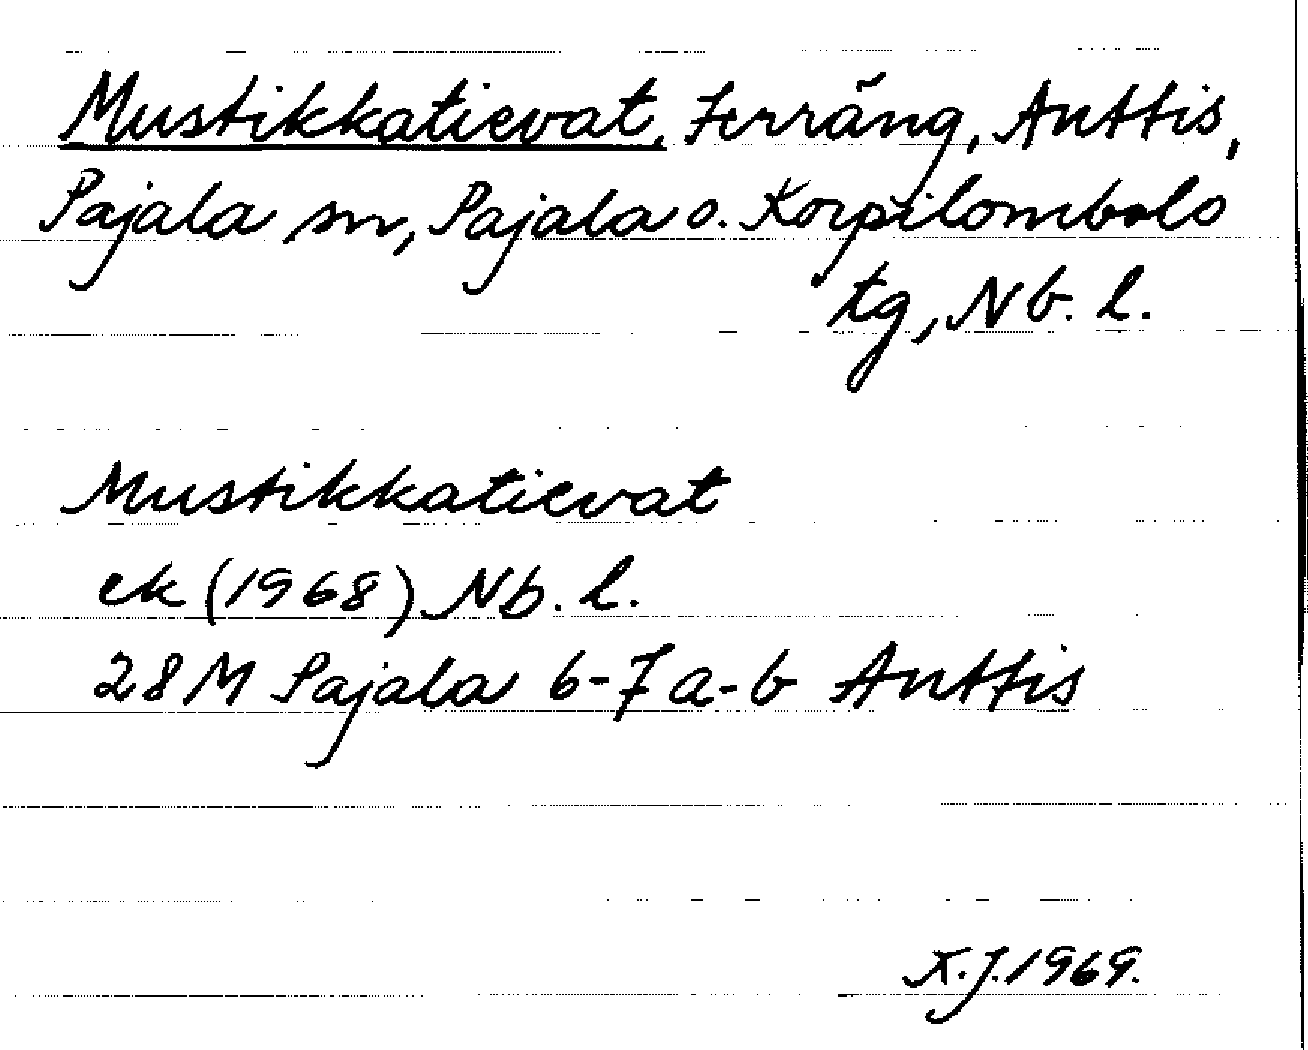 Mustikkatievat, Terräng, Anttis,
Pajala sn, Pajala o. Korpilombolo
tg, Nb. l.
Mustikkatievat
ek (1968) Nb. l.
28 M Pajala 6-7 a-b Anttis
K.J. 1969.